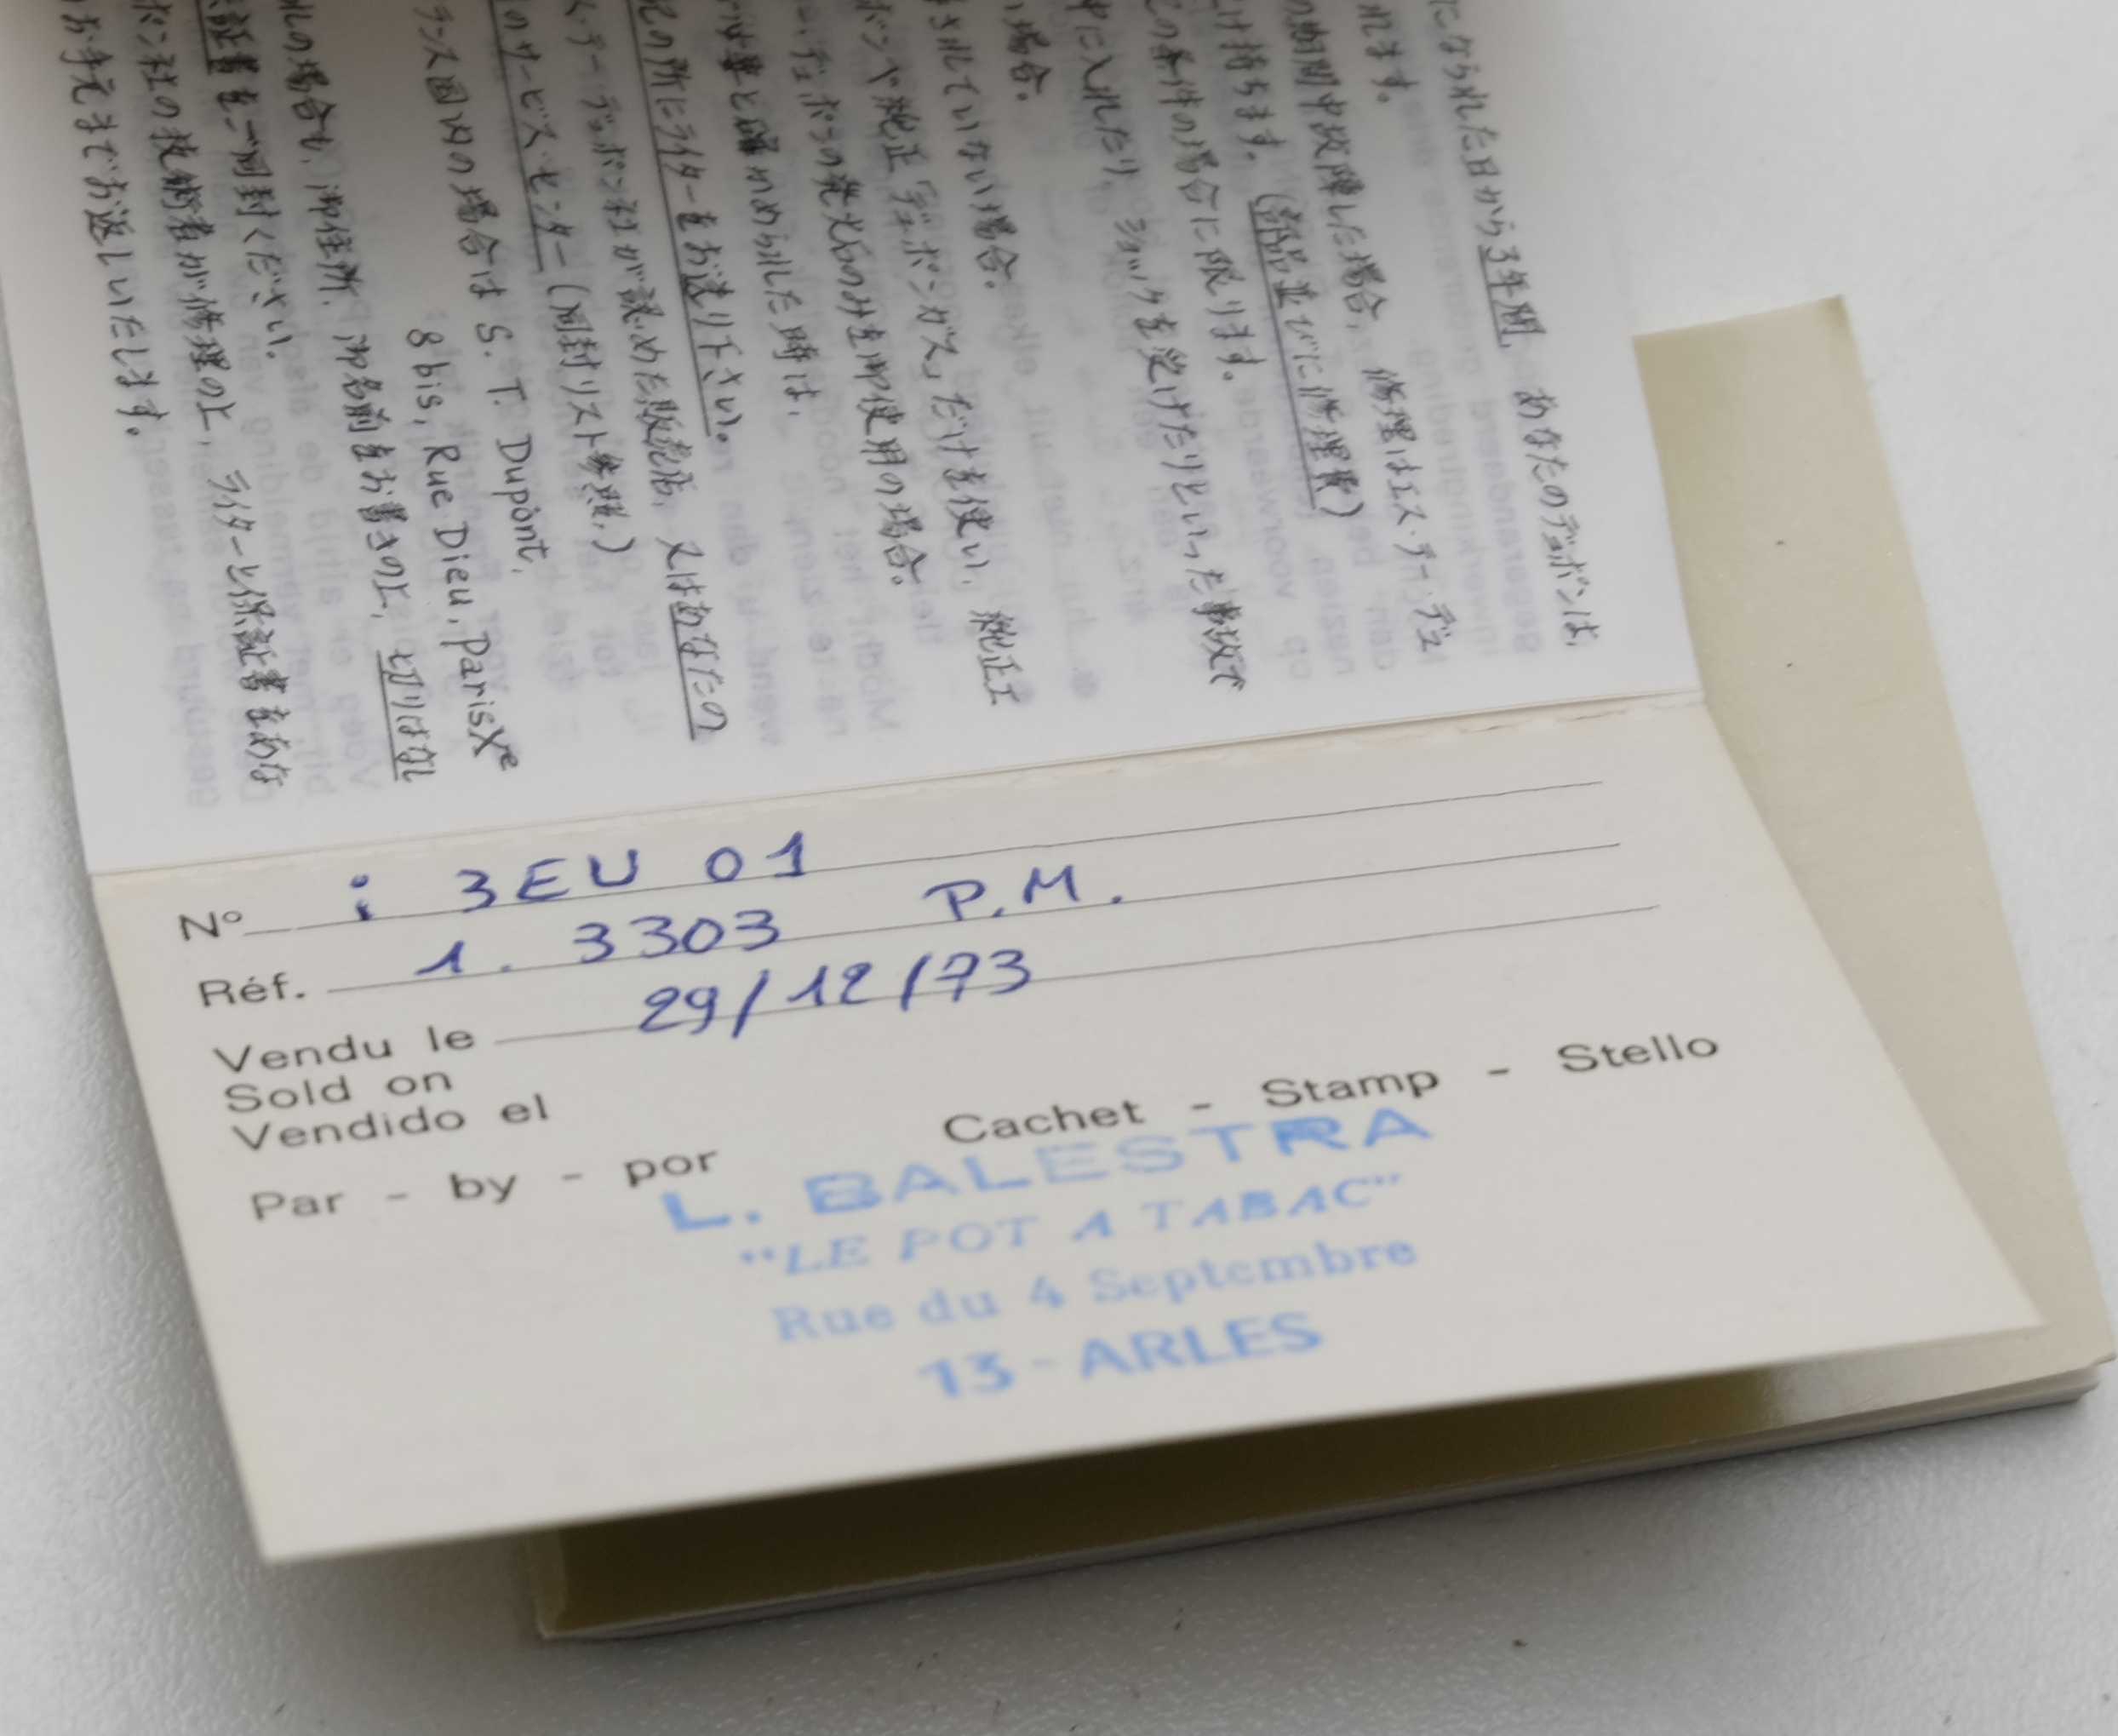 になられた日から3年間, あなたのデュポンは,
れます。
の期間中故障した場合, 修理はエス・テー・デュ
け持ちます。(部品並びに修理費)
の条件の場合に限ります。
中に入れたり, ショックを受けたりといった事故で
い場合。
されていない場合。
ボンベ純正「デュポンガス」だけを使い, 純正エ
ー・デュポンの発火石のみを御使用の場合。
事と確かめられた時は,
記の所にライターをお送り下さい。
ス・テー・デュポン社が認めた販売店, 又はあなたの
のサービス・センター(同封リスト参照,)
ランス国内の場合は S. T. Dupont,
8 bis, Rue Dieu, Paris Xe
れの場合も, 御住所, 御名前をお書きの上, 切りはなし
証書をご同封ください。
ポン社の技術者が修理の上, ライターと保証書をあな
お手元までお返しいたします。
N° : 3EU 01
Réf. 1. 3303 P.M.
Vendu le 29/12/73
Sold on
Vendido el
Par - by - por Cachet - Stamp - Stello
L. BALESTRA
"LE POT A TABAC"
Rue du 4 Septembre
13 - ARLES